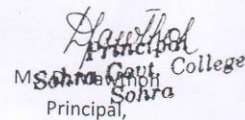 Principal
Sohra Govt. College
Sohra
Principal,